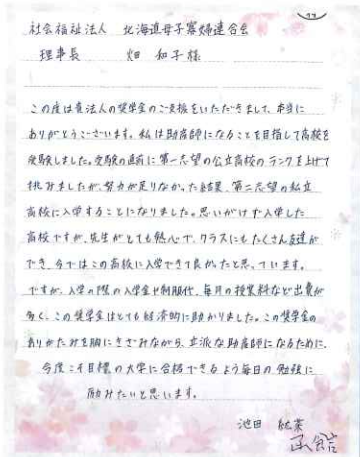 社会福祉法人 北海道母子寡婦連合会
理事長 畑 和子様
この度は貴法人の奨学金のご支援をいただきまして、本当に
ありがとうございます。私は助産師になることを目指して高校を
受験しました。受験の直前に第一志望の公立高校のランクを上げて
挑みましたが、努力が足りなかった結果、第二志望の私立
高校に入学することになりました。思いがけず入学した
高校ですが、先生がとても熱心で、クラスにもたくさん友達が
でき、今ではこの高校に入学できて良かったと思っています。
ですが、入学の際の入学金や制服代、毎月の授業料など出費が
多く、この奨学金はとても経済的に助かりました。この奨学金の
ありがたみを胸にきざみながら、立派な助産師になるために、
今度こそ目標の大学に合格できるよう毎日の勉強に
励みたいと思います。
池田
函館